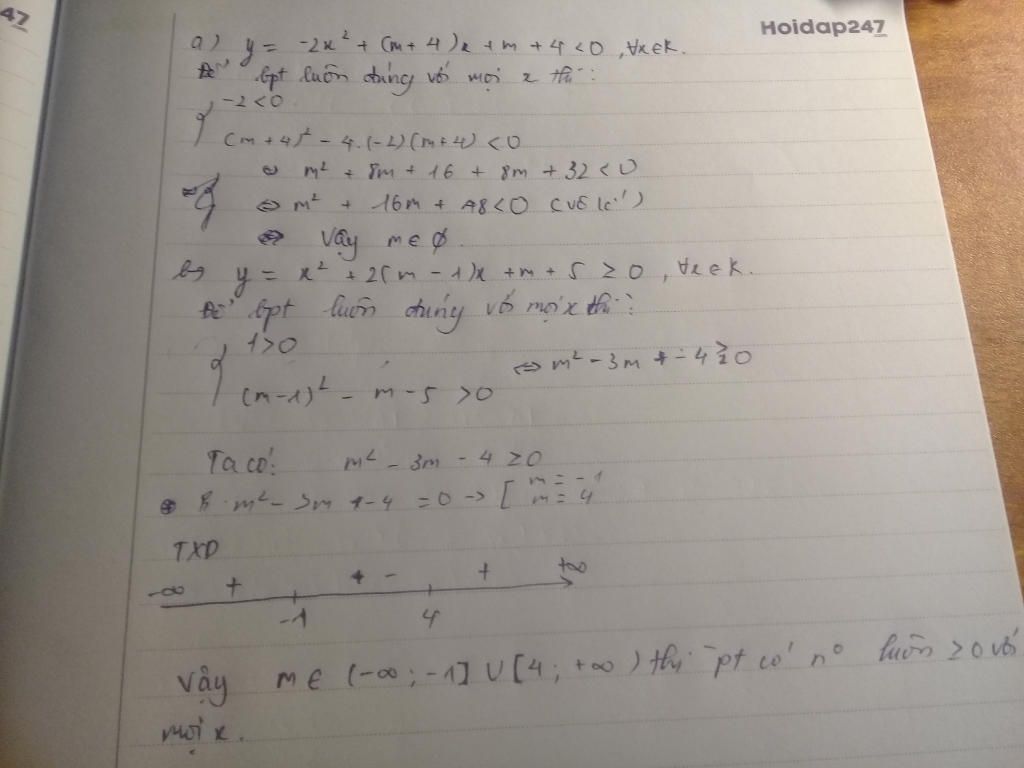 47
Hoidap247
a) y = -2x² + (m+4)x + m + 4 < 0, ∀x∈R.
Để bpt luôn đúng với mọi x thì:
{ -2 < 0
(m+4)² - 4.(-2)(m+4) < 0
⇔ m² + 8m + 16 + 8m + 32 < 0
⇔ m² + 16m + 48 < 0 (vô lí)
⇔ Vậy m ∈ ∅.
b) y = x² + 2(m-1)x + m + 5 ≥ 0, ∀x∈R.
Để bpt luôn đúng với mọi x thì:
{ 1 > 0
(m-1)² - m - 5 > 0 ⇔ m² - 3m - 4 ≥ 0
Ta có: m² - 3m - 4 ≥ 0
m² - 3m - 4 = 0 → [ m = -1
m = 4
TXD
-∞ + - + +∞
-1 4
Vậy m ∈ (-∞; -1] ∪ [4; +∞) thì pt có n° luôn ≥ 0 với
mọi x.